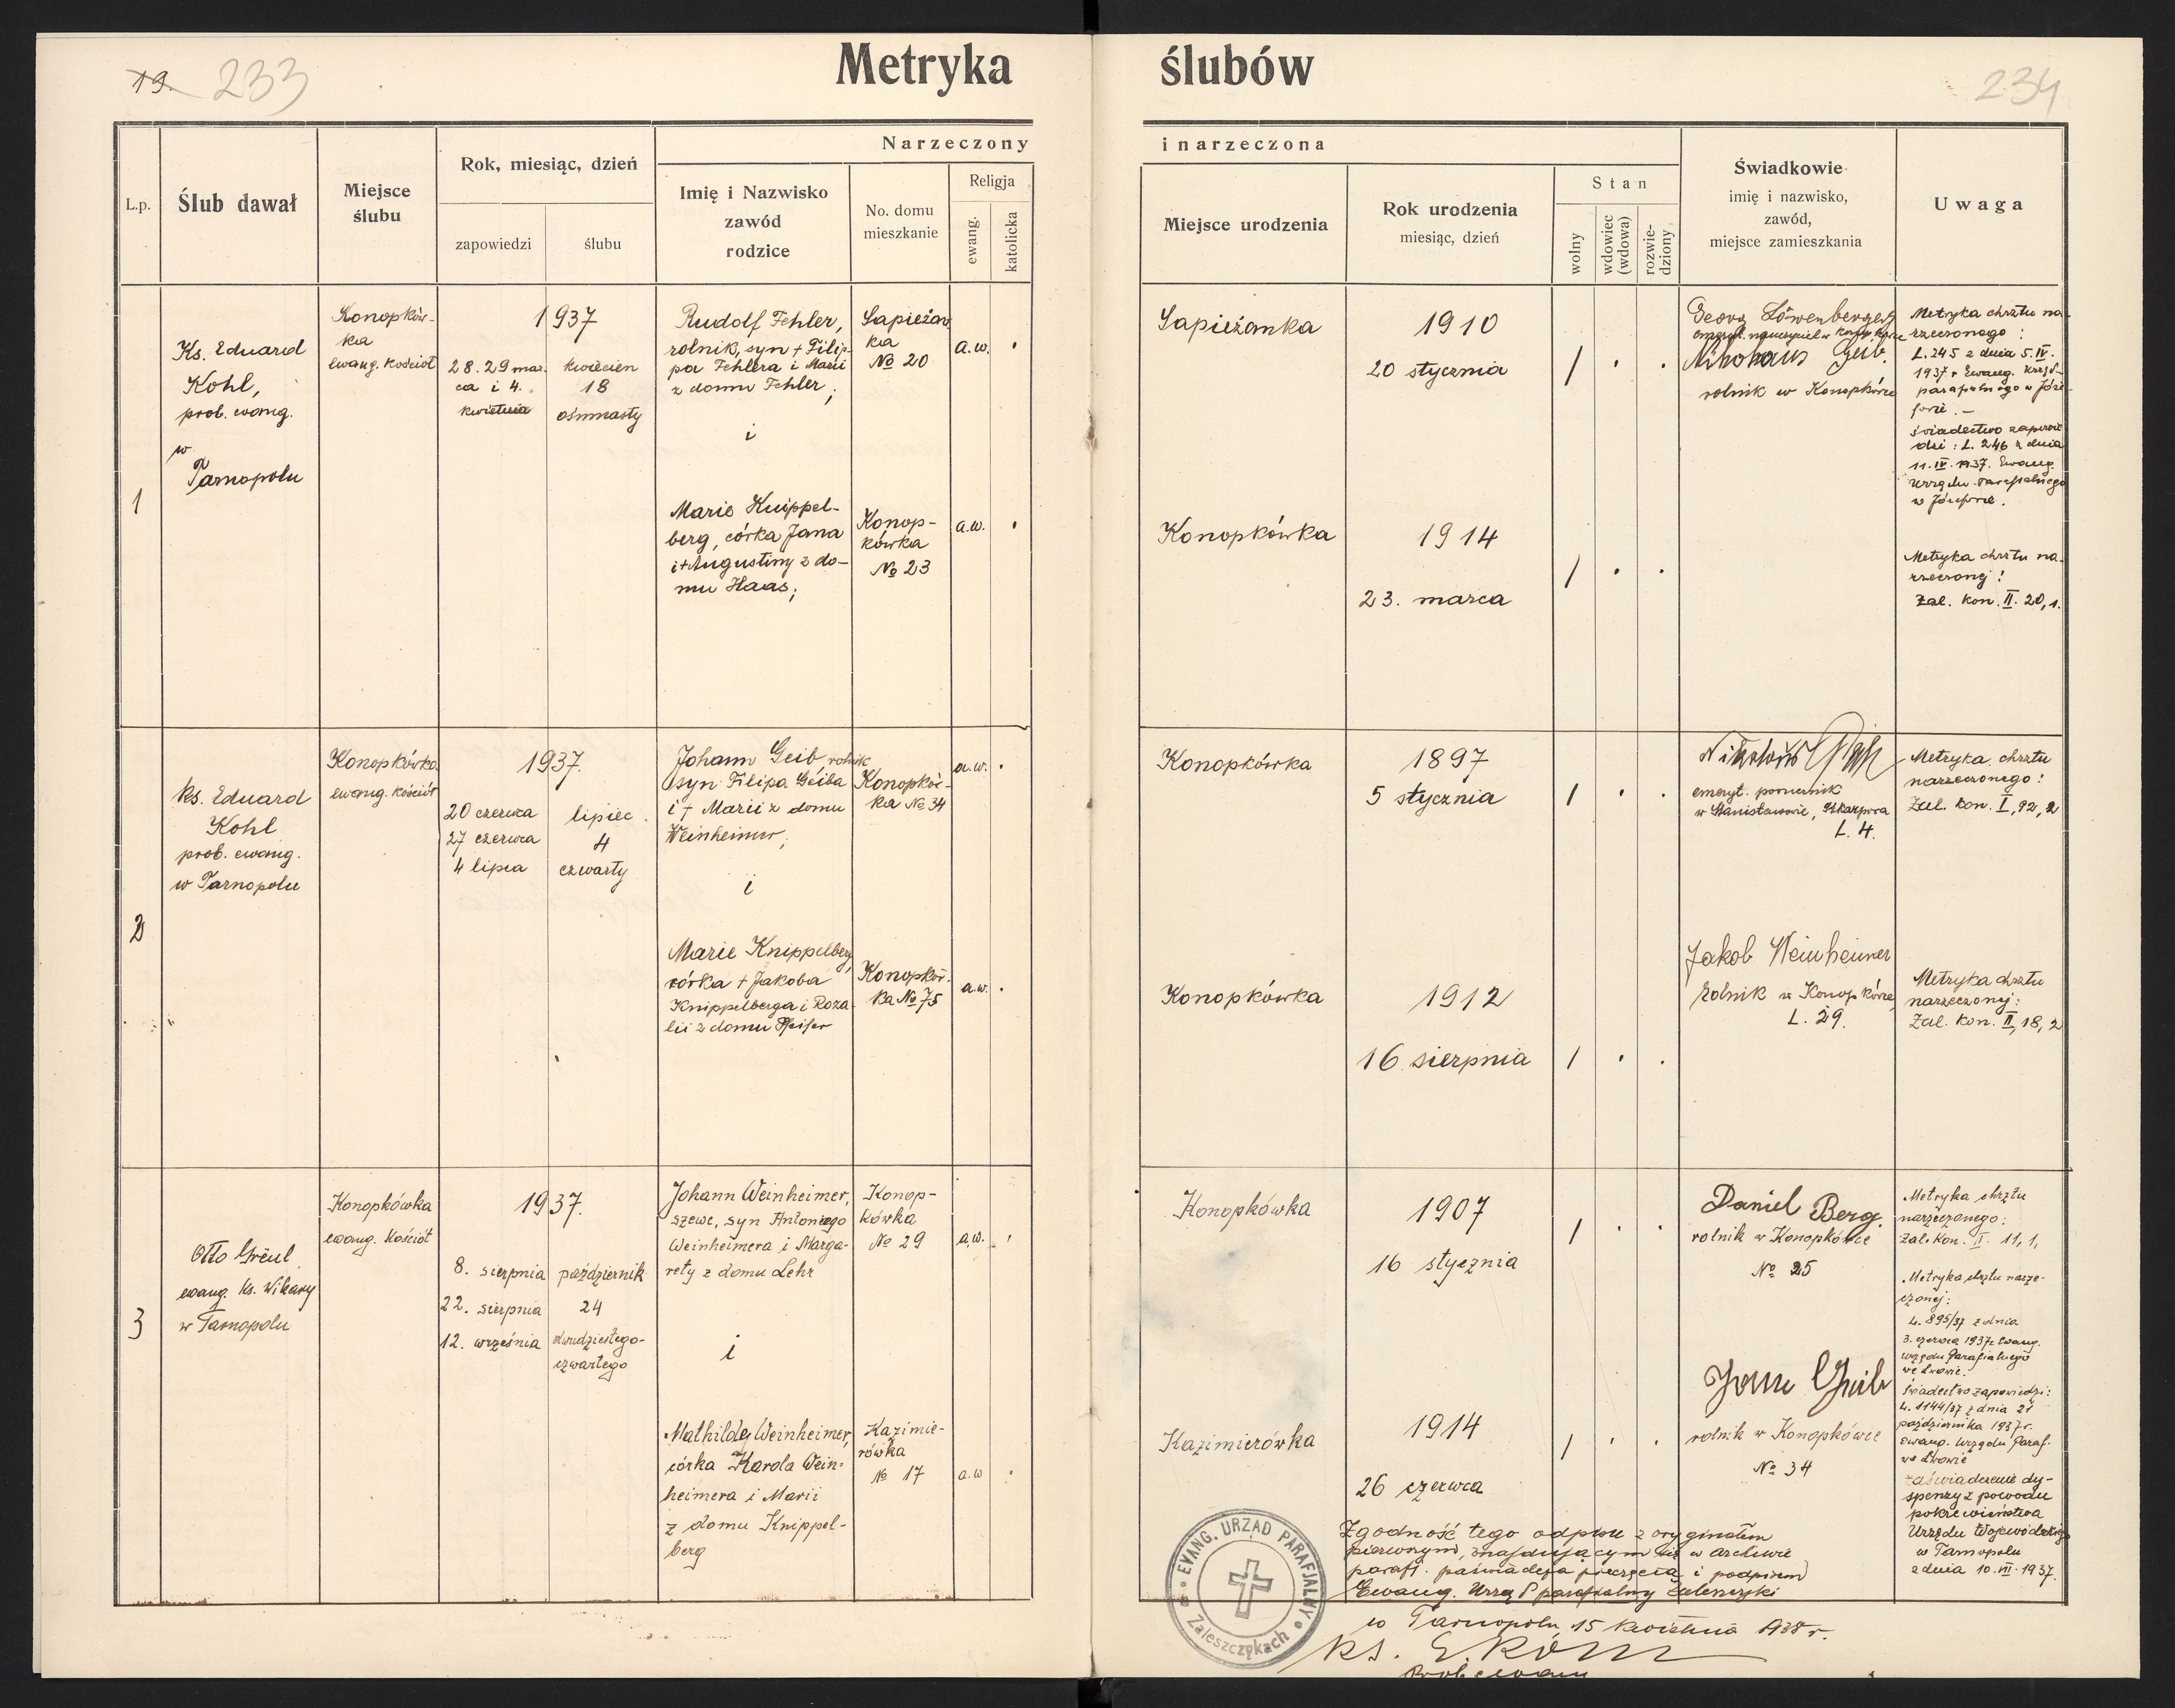 19. 233
Metryka
L.p.
Ślub dawał
Miejsce
ślubu
Rok, miesiąc, dzień
zapowiedzi
ślubu
Narzeczony
Imię i Nazwisko
zawód
rodzice
No. domu
mieszkanie
Religja
ewang.
katolicka
1
Ks. Eduard
Kohl,
prob. ewang.
w
Tarnopolu
Konopków-
ka
ewang. kościół
1937
28. 29 mar-
ca i 4.
kwietnia
kwiecien
18
ośmnasty
Rudolf Fehler,
rolnik, syn + Filip-
pa Fehlera i Marii
z domu Fehler;
i
Marie Knippel-
berg, córka Jana
i + Augustiny z do-
mu Haas;
Sapieżan
ka
№ 20
Konop-
kówka
№ 23
a.w.
a.w.
2
Ks. Eduard
Kohl
prob. ewang.
w Tarnopolu
Konopkówka
ewang. kościół
1937.
20 czerwca
27 czerwca
4 lipca
lipiec.
4
czwarty
Johann Geib, rolnik
syn Filipa Geiba
i + Marii z domu
Weinheimer;
i
Marie Knippelberg,
córka + Jakoba
Knippelberga i Roza-
lii z domu Pfeifer
Konopków-
ka № 34
Konopków-
ka № 75
a.w.
a.w.
3
Otto Greul,
ewang. ks. Wikary
w Tarnopolu
Konopkówka
ewang. Kościół
1937.
8. sierpnia
22. sierpnia
12. września
październik
24
dwudziestego-
czwartego
Johann Weinheimer,
szewc, syn Antoniego
Weinheimera i Marga-
rety z domu Lehr
i
Mathilde Weinheimer,
córka Karola Wein-
heimera i Marii
z domu Knippel-
berg
Konop-
kówka
№ 29
Kazimie-
rówka
№ 17
a.w.
a.w
ślubów
234
i narzeczona
Miejsce urodzenia
Rok urodzenia
miesiąc, dzień
Stan
wolny
wdowiec
(wdowa)
rozwie-
dziony
Świadkowie
imię i nazwisko,
zawód,
miejsce zamieszkania
Uwaga
Sapieżanka
1910
20 stycznia
/
Georg Löwenberger
emeryt. nauczyciel w
Nikolaus Geib,
rolnik w Konopkówce
Metryka chrztu na-
rzeczonego:
L. 245 z dnia 5. IV.
1937 r. Ewang. Urzęd-
parafialnego w Józe-
fowie. –
świadectwo zapowie-
dzi: L. 246 z dnia
11. IV. 1937. Ewang.
Urzędu Parafialnego
w Józefowie.
Konopkówka
1914
23. marca
/
Metryka chrztu na-
rzeczonej:
Zal. kon. II. 20, 1.
Konopkówka
1897
5 stycznia
/
emeryt.
w Stanisławowie,
L. 4.
Metryka chrztu
narzeczonego:
Zal. kon. I, 92, 2
Konopkówka
1912
16 sierpnia
/
Jakob Weinheimer
rolnik w Konopkówce,
L. 29.
Metryka chrztu
narzeczonej:
Zal. kon. II, 18, 2
Konopkówka
1907
16 stycznia
/
Daniel Berg.
rolnik w Konopkówce
№ 25
Metryka chrztu
narzeczonego:
Zal. Kon. II. 11, 1,
Kazimierówka
1914
26 czerwca
/
Geib
rolnik w Konopkówce
№ 34
Metryka chrztu narze-
czonej:
L. 895/37 z dnia
3. czerwca 1937 r. Ewang.
urzędu Parafialnego
we Lwowie.
Świadectwo zapowiedzi:
L. 1144/37 z dnia 21
października 1937 r.
Ewang. Urzędu Paraf.
we Lwowie
zaświadczenie dy-
spenzy z powodu
pokrewieństwa
Urzędu Wojewódzkiego
w Tarnopolu
z dnia 10. VII. 1937.
Zgodność tego odpisu z oryginałem
pierwszym, znajdującym się w archiwie
paraf. poświadcza pieczęcią i podpisem
Ewang. Urząd parafialny Zaleszczyki
w Tarnopolu, 15 kwietnia 1938 r.
Ks. E. Kohl
Prob. ewang.
EVANG. URZĄD PARAFJALNY
Zaleszczykach